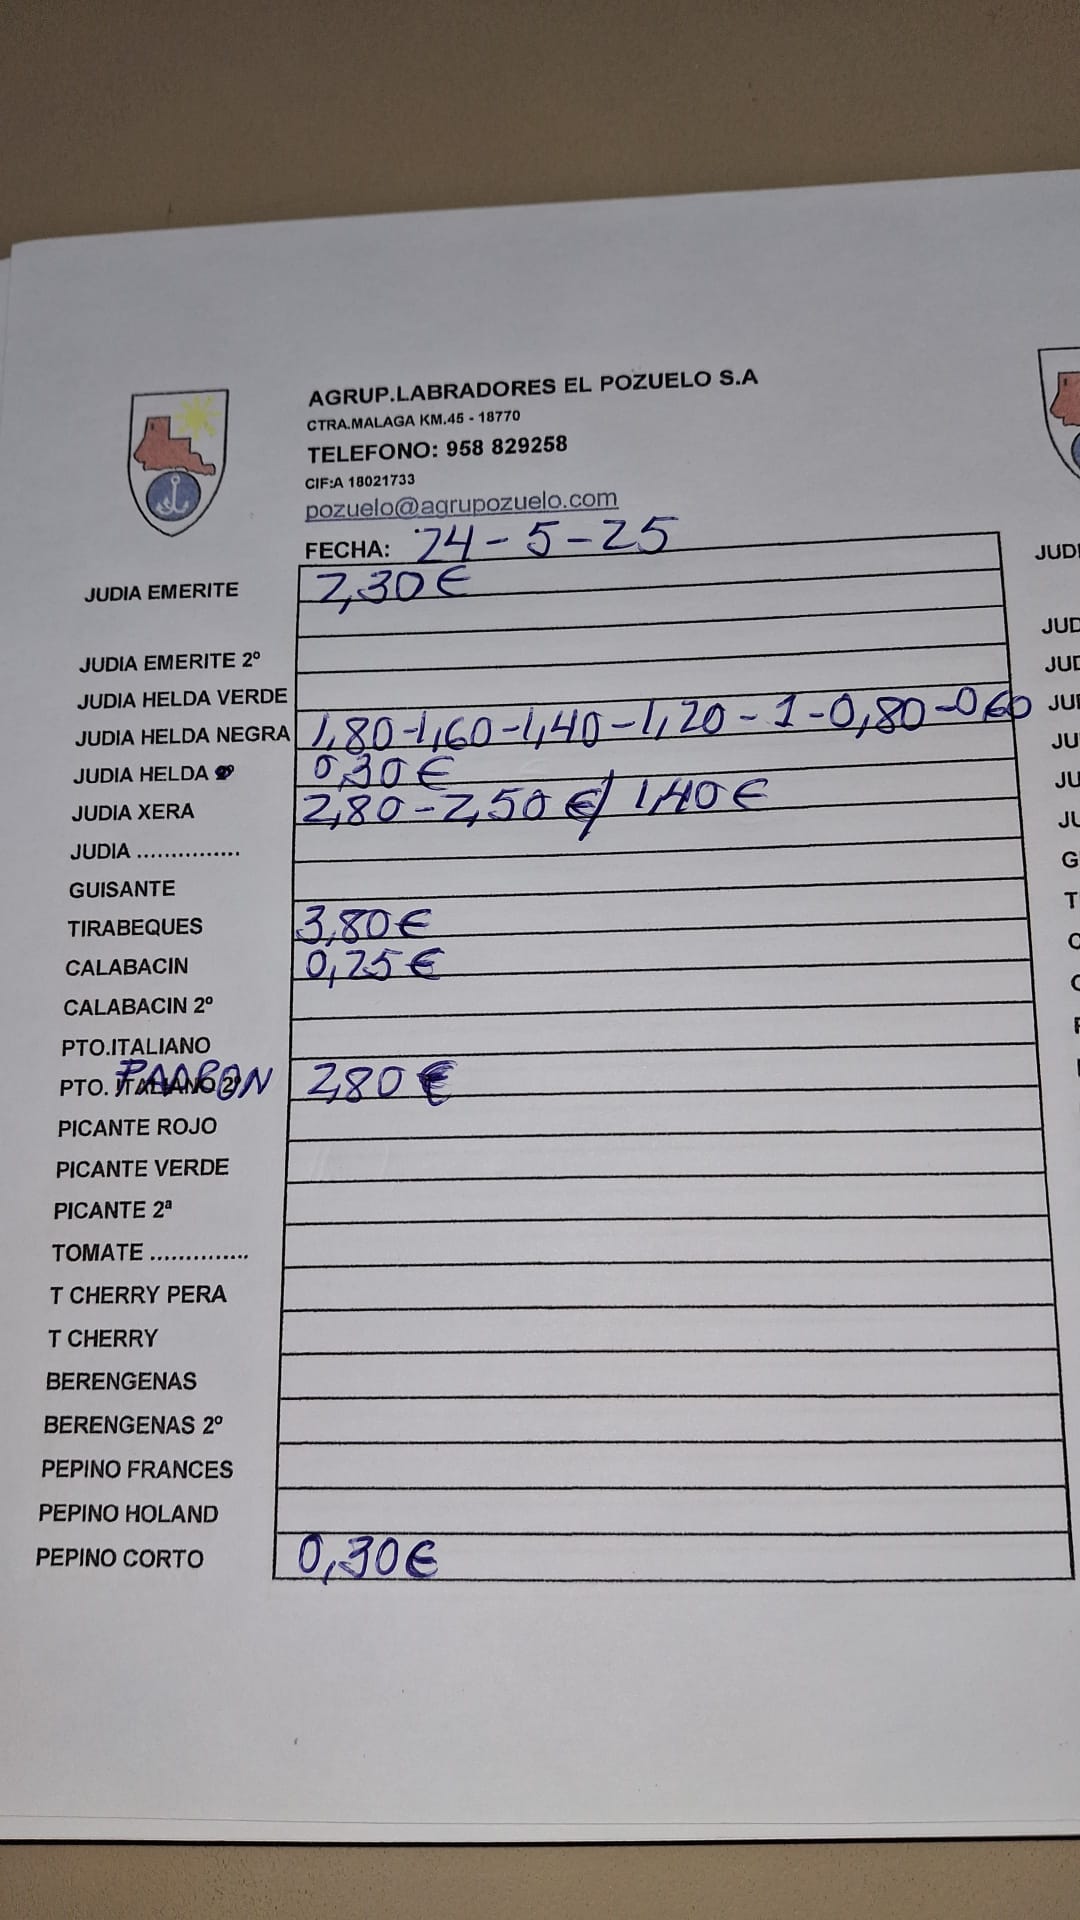 AGRUP.LABRADORES EL POZUELO S.A
CTRA.MALAGA KM.45 - 18770
TELEFONO: 958 829258
CIF:A 18021733
pozuelo@agrupozuelo.com
FECHA: 24-5-25
JUDIA EMERITE 2,30€
JUDIA EMERITE 2º
JUDIA HELDA VERDE
JUDIA HELDA NEGRA 1,80-1,60-1,40-1,20-1-0,80-0,60
JUDIA HELDA 0,30€
JUDIA XERA 2,80-2,50€/ 1,40€
JUDIA ...............
GUISANTE
TIRABEQUES 3,80€
CALABACIN 0,25€
CALABACIN 2º
PTO.ITALIANO
PTO. PADRON 2,80€
PICANTE ROJO
PICANTE VERDE
PICANTE 2ª
TOMATE ..............
T CHERRY PERA
T CHERRY
BERENGENAS
BERENGENAS 2º
PEPINO FRANCES
PEPINO HOLAND
PEPINO CORTO 0,30€
JUDI
JUD
JUD
JU
JU
JU
JU
G
T
C
C